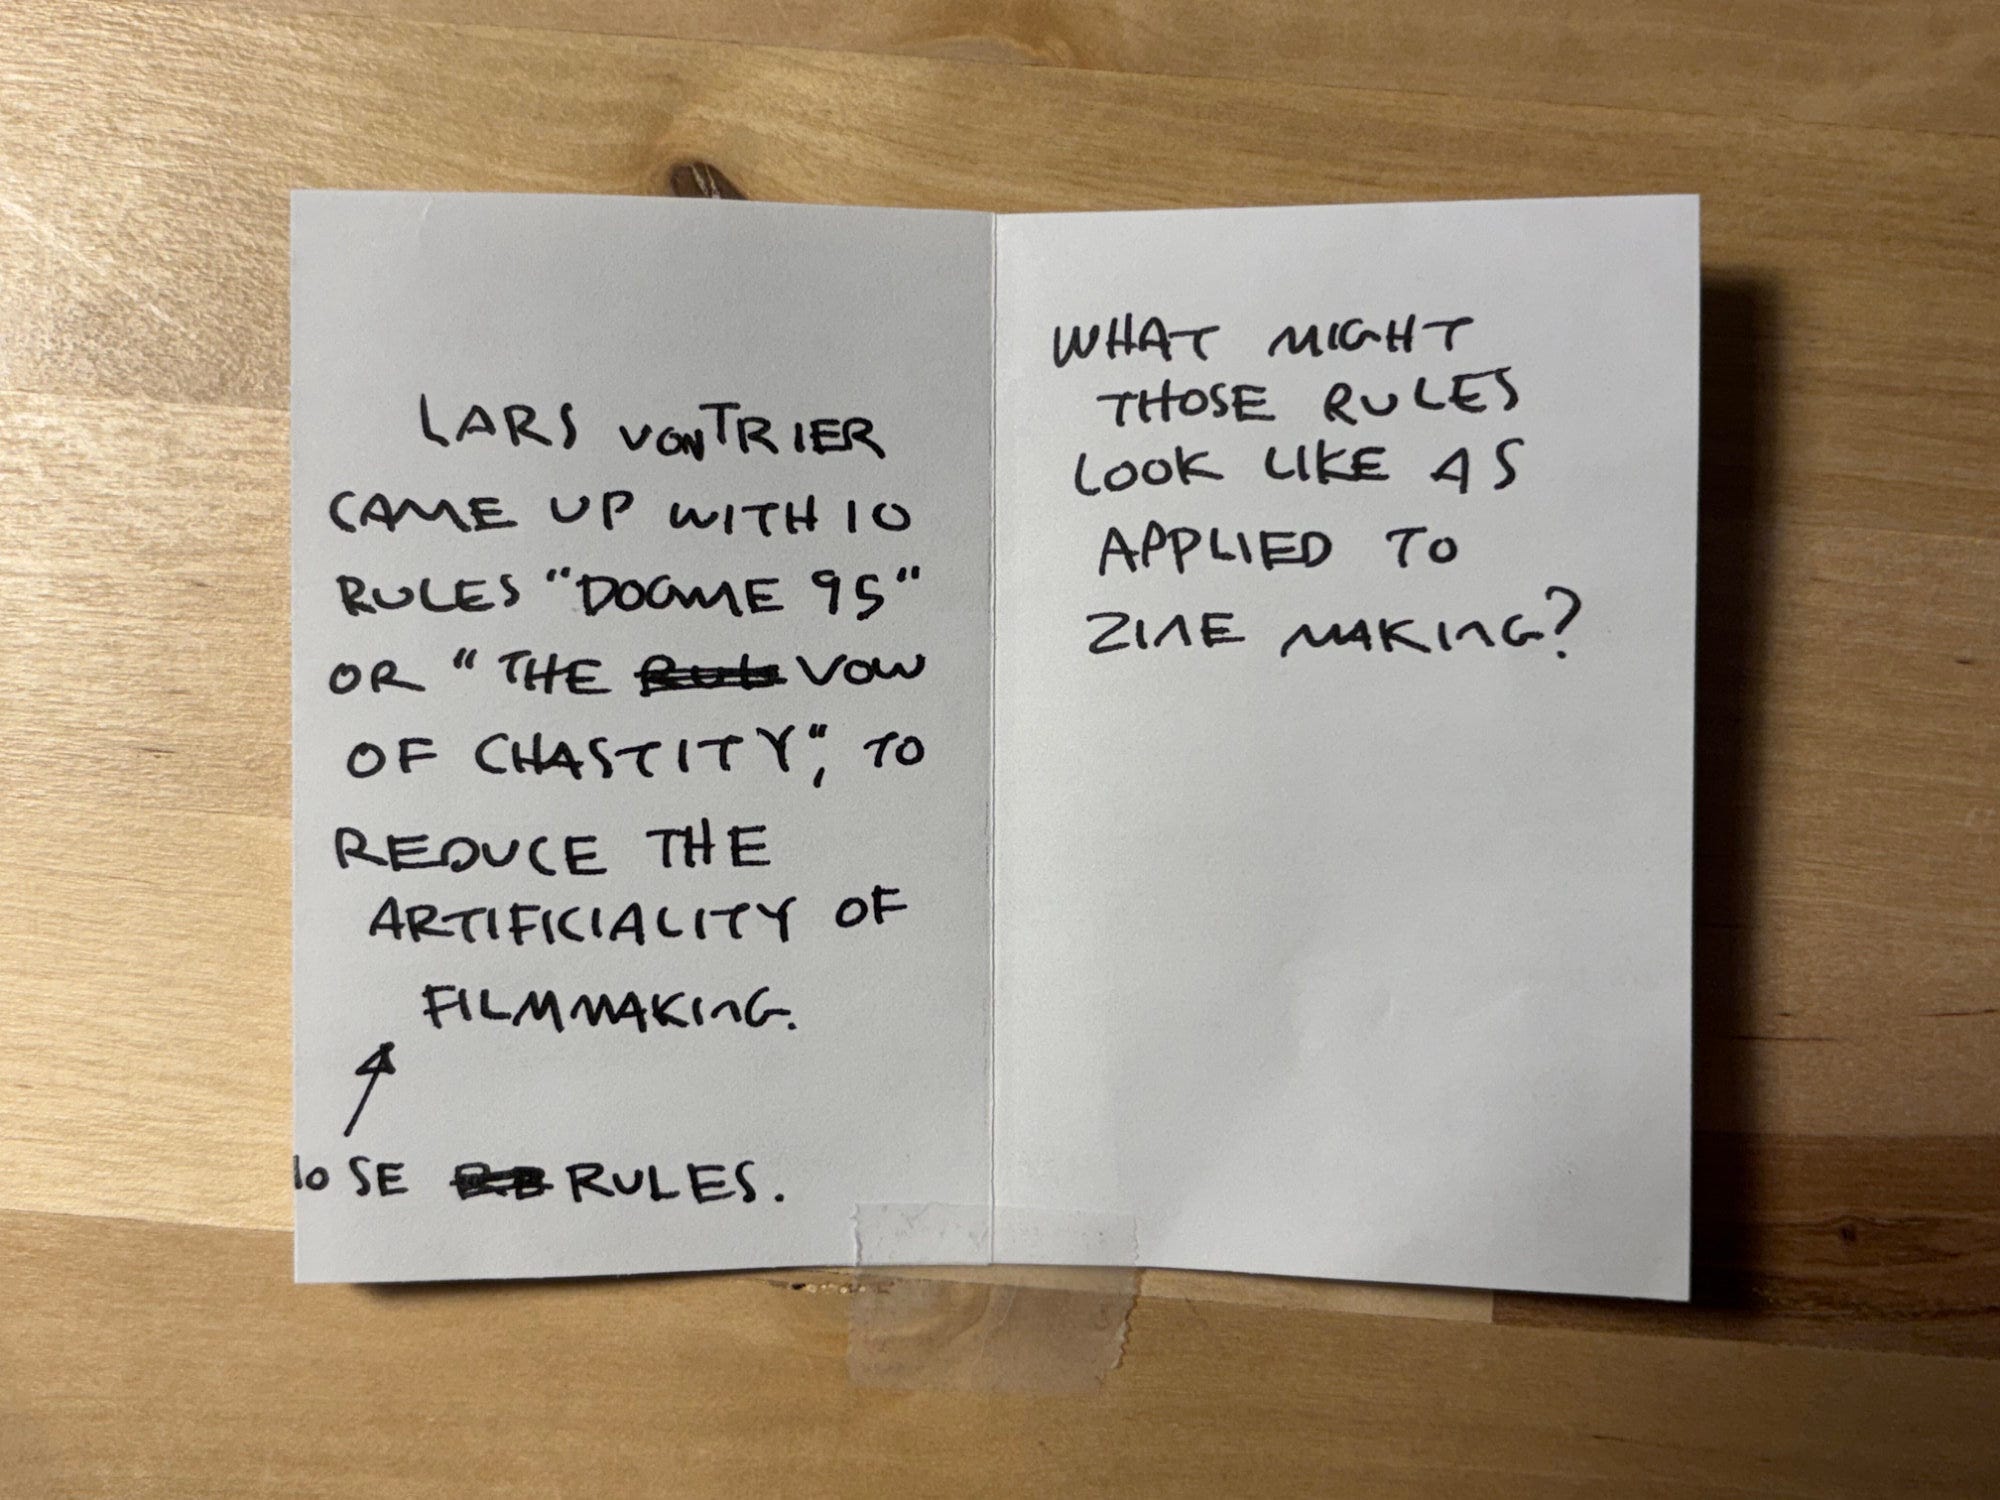 LARS VON TRIER
CAME UP WITH 10
RULES "DOGME 95"
OR "THE VOW
OF CHASTITY", TO
REDUCE THE
ARTIFICIALITY OF
FILMMAKING.
10 SE RULES.
WHAT MIGHT
THOSE RULES
LOOK LIKE AS
APPLIED TO
ZINE MAKING?